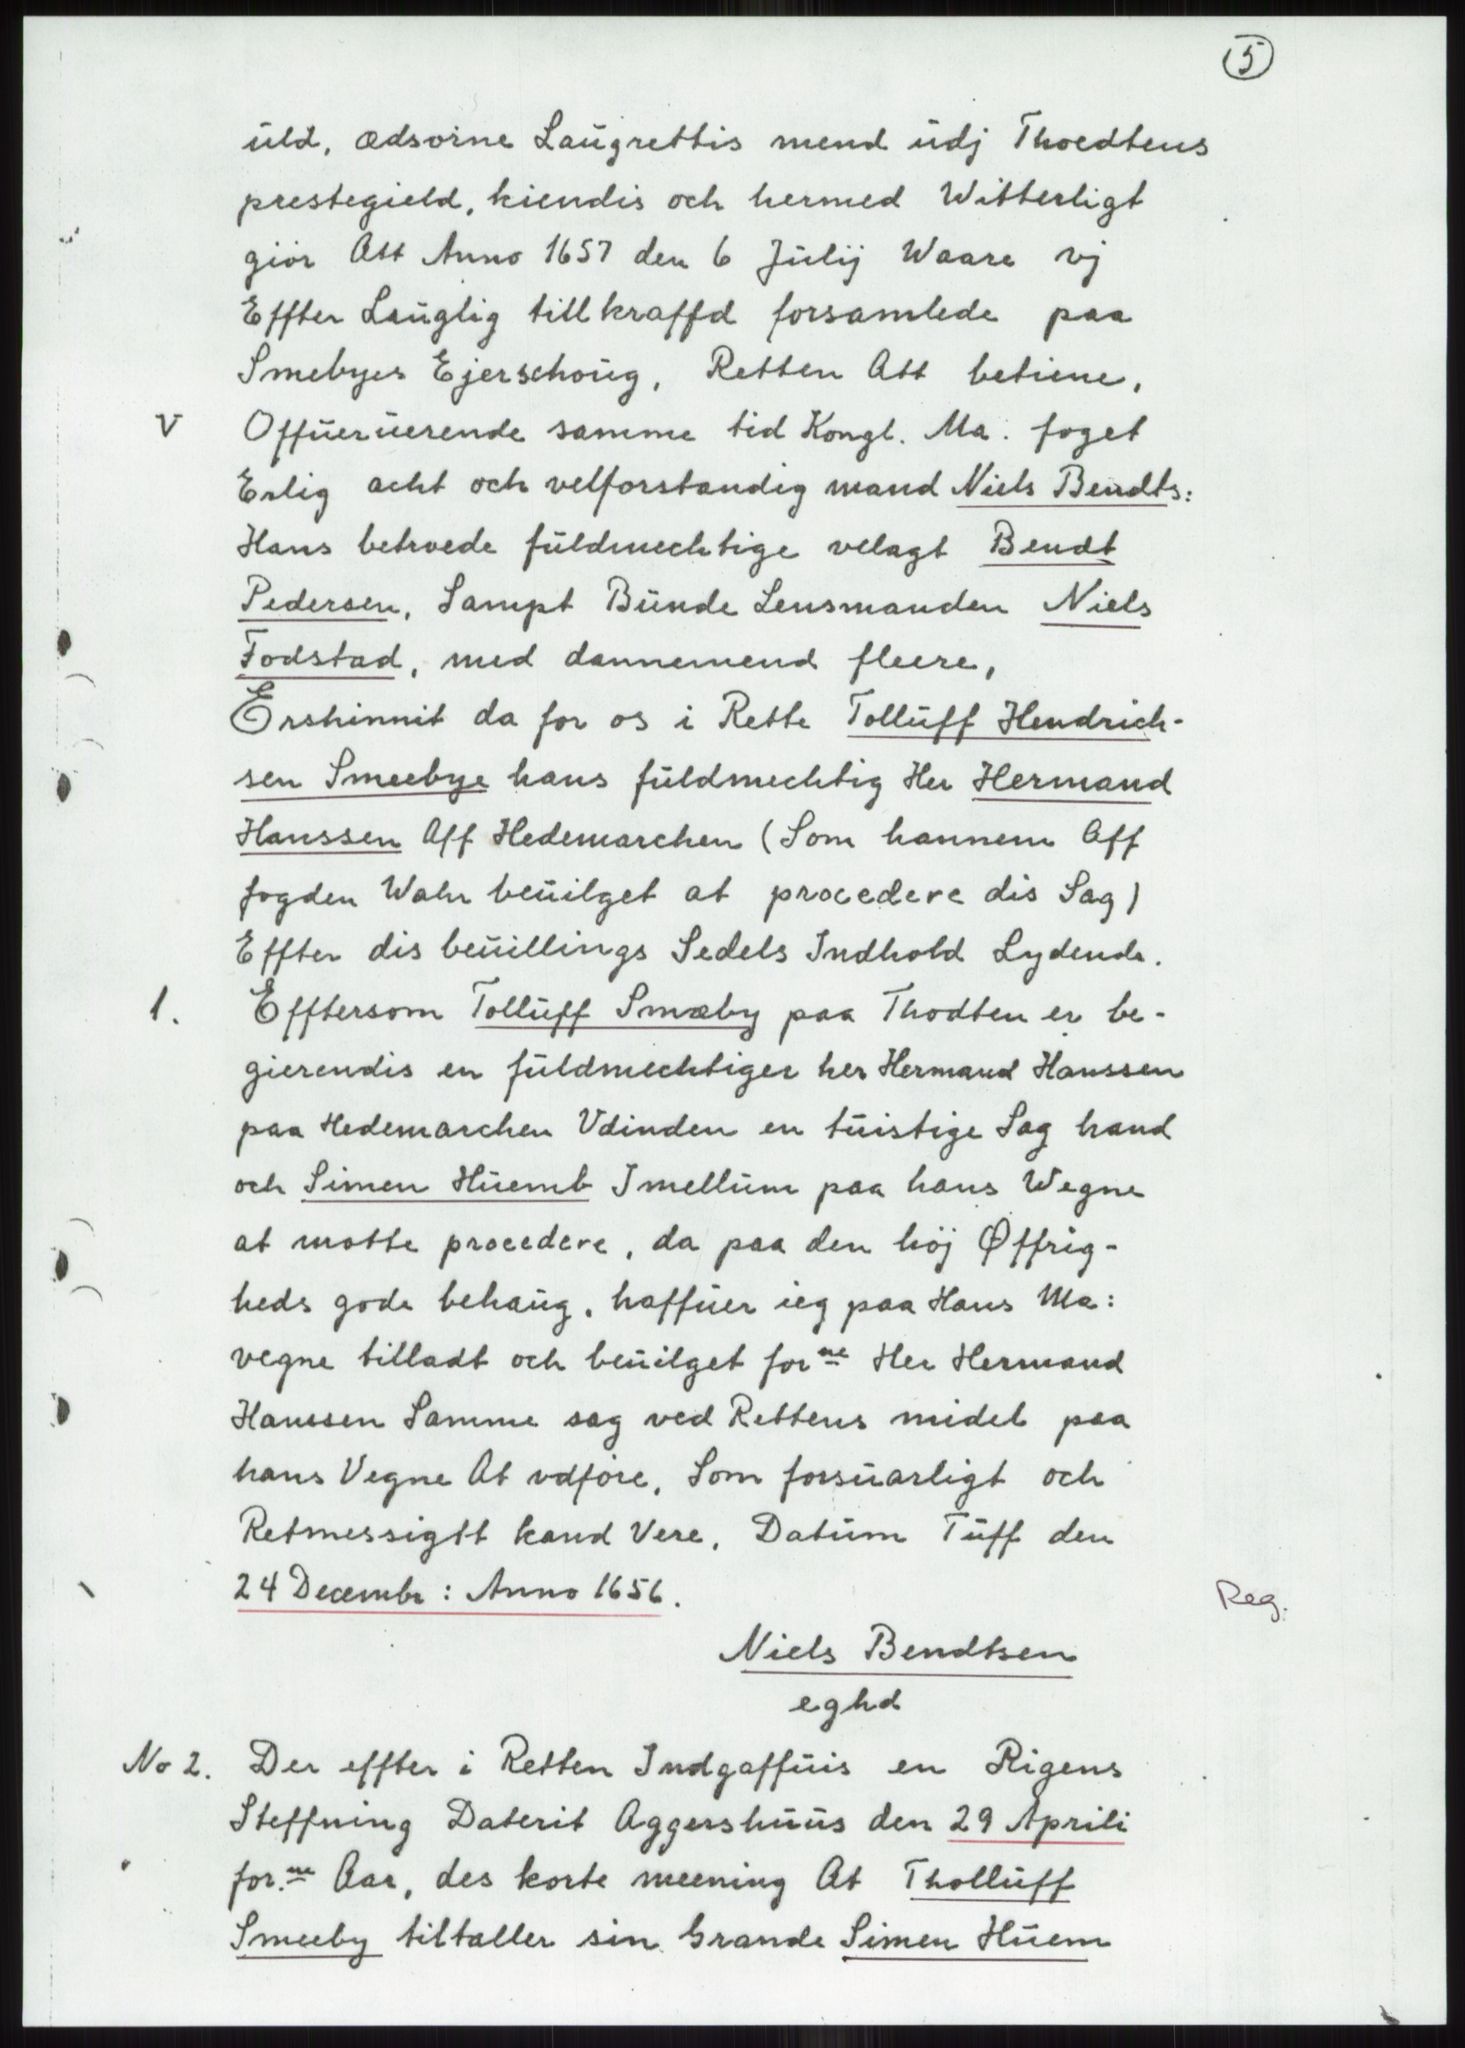 5
uld, ædsorne Laugrettis mend udj Thoedtens
prestegield, kiendis och hermed Witterligt
giör Att Anno 1657 den 6 Julij Waare vj
Effter Lauglig tillkraffd forsamlede paa
Smebyes Ejerschoug, Retten Att betiene,
V Offueruerende samme tid Kongl. Ma. foget
Erlig acht och velforstandig mand Niels Bendts:
Hans betroede fuldmechtige velagt Bendt
Pedersen, Sampt Bunde Lensmanden Niels
Fodstad, med dannemend fleere,
Ershinnit da for os i Rette Tolluff Hendrich-
sen Smeebye hans fuldmechtig Her Hermand
Hanssen Aff Hedemarchen (Som hannem Aff
fogden Wahr beuilget at procedere dis Sag)
Effter dis beuillings Sedels Indhold Lydende.
1. Efftersom Tolluff Smæby paa Thodten er be-
gierendis en fuldmechtiger her Hermand Hanssen
paa Hedemarchen Vdinden en tuistige Sag hand
och Simen Huemb Imellum paa hans Wegne
at motte procedere, da paa den höj Øffrig-
heds gode behaug, haffuer ieg paa Hans Ma:
vegne tilladt och beuilget for ne Her Hermand
Hanssen Samme sag ved Rettens midel paa
hans Vegne At vdföre, Som forsuarligt och
Retmessigtt kand Vere, Datum Tuff den
24 Decembr: Anno 1656.
Reg.
Niels Bendtsen
eghd
No 2. Der effter i Retten Indgaffuis en Rigens
Steffning Daterit Aggershuus den 29 Aprili
for. ne Aar, des korte meening At Tholluff
Smeeby tiltaller sin Grande Simen Huem